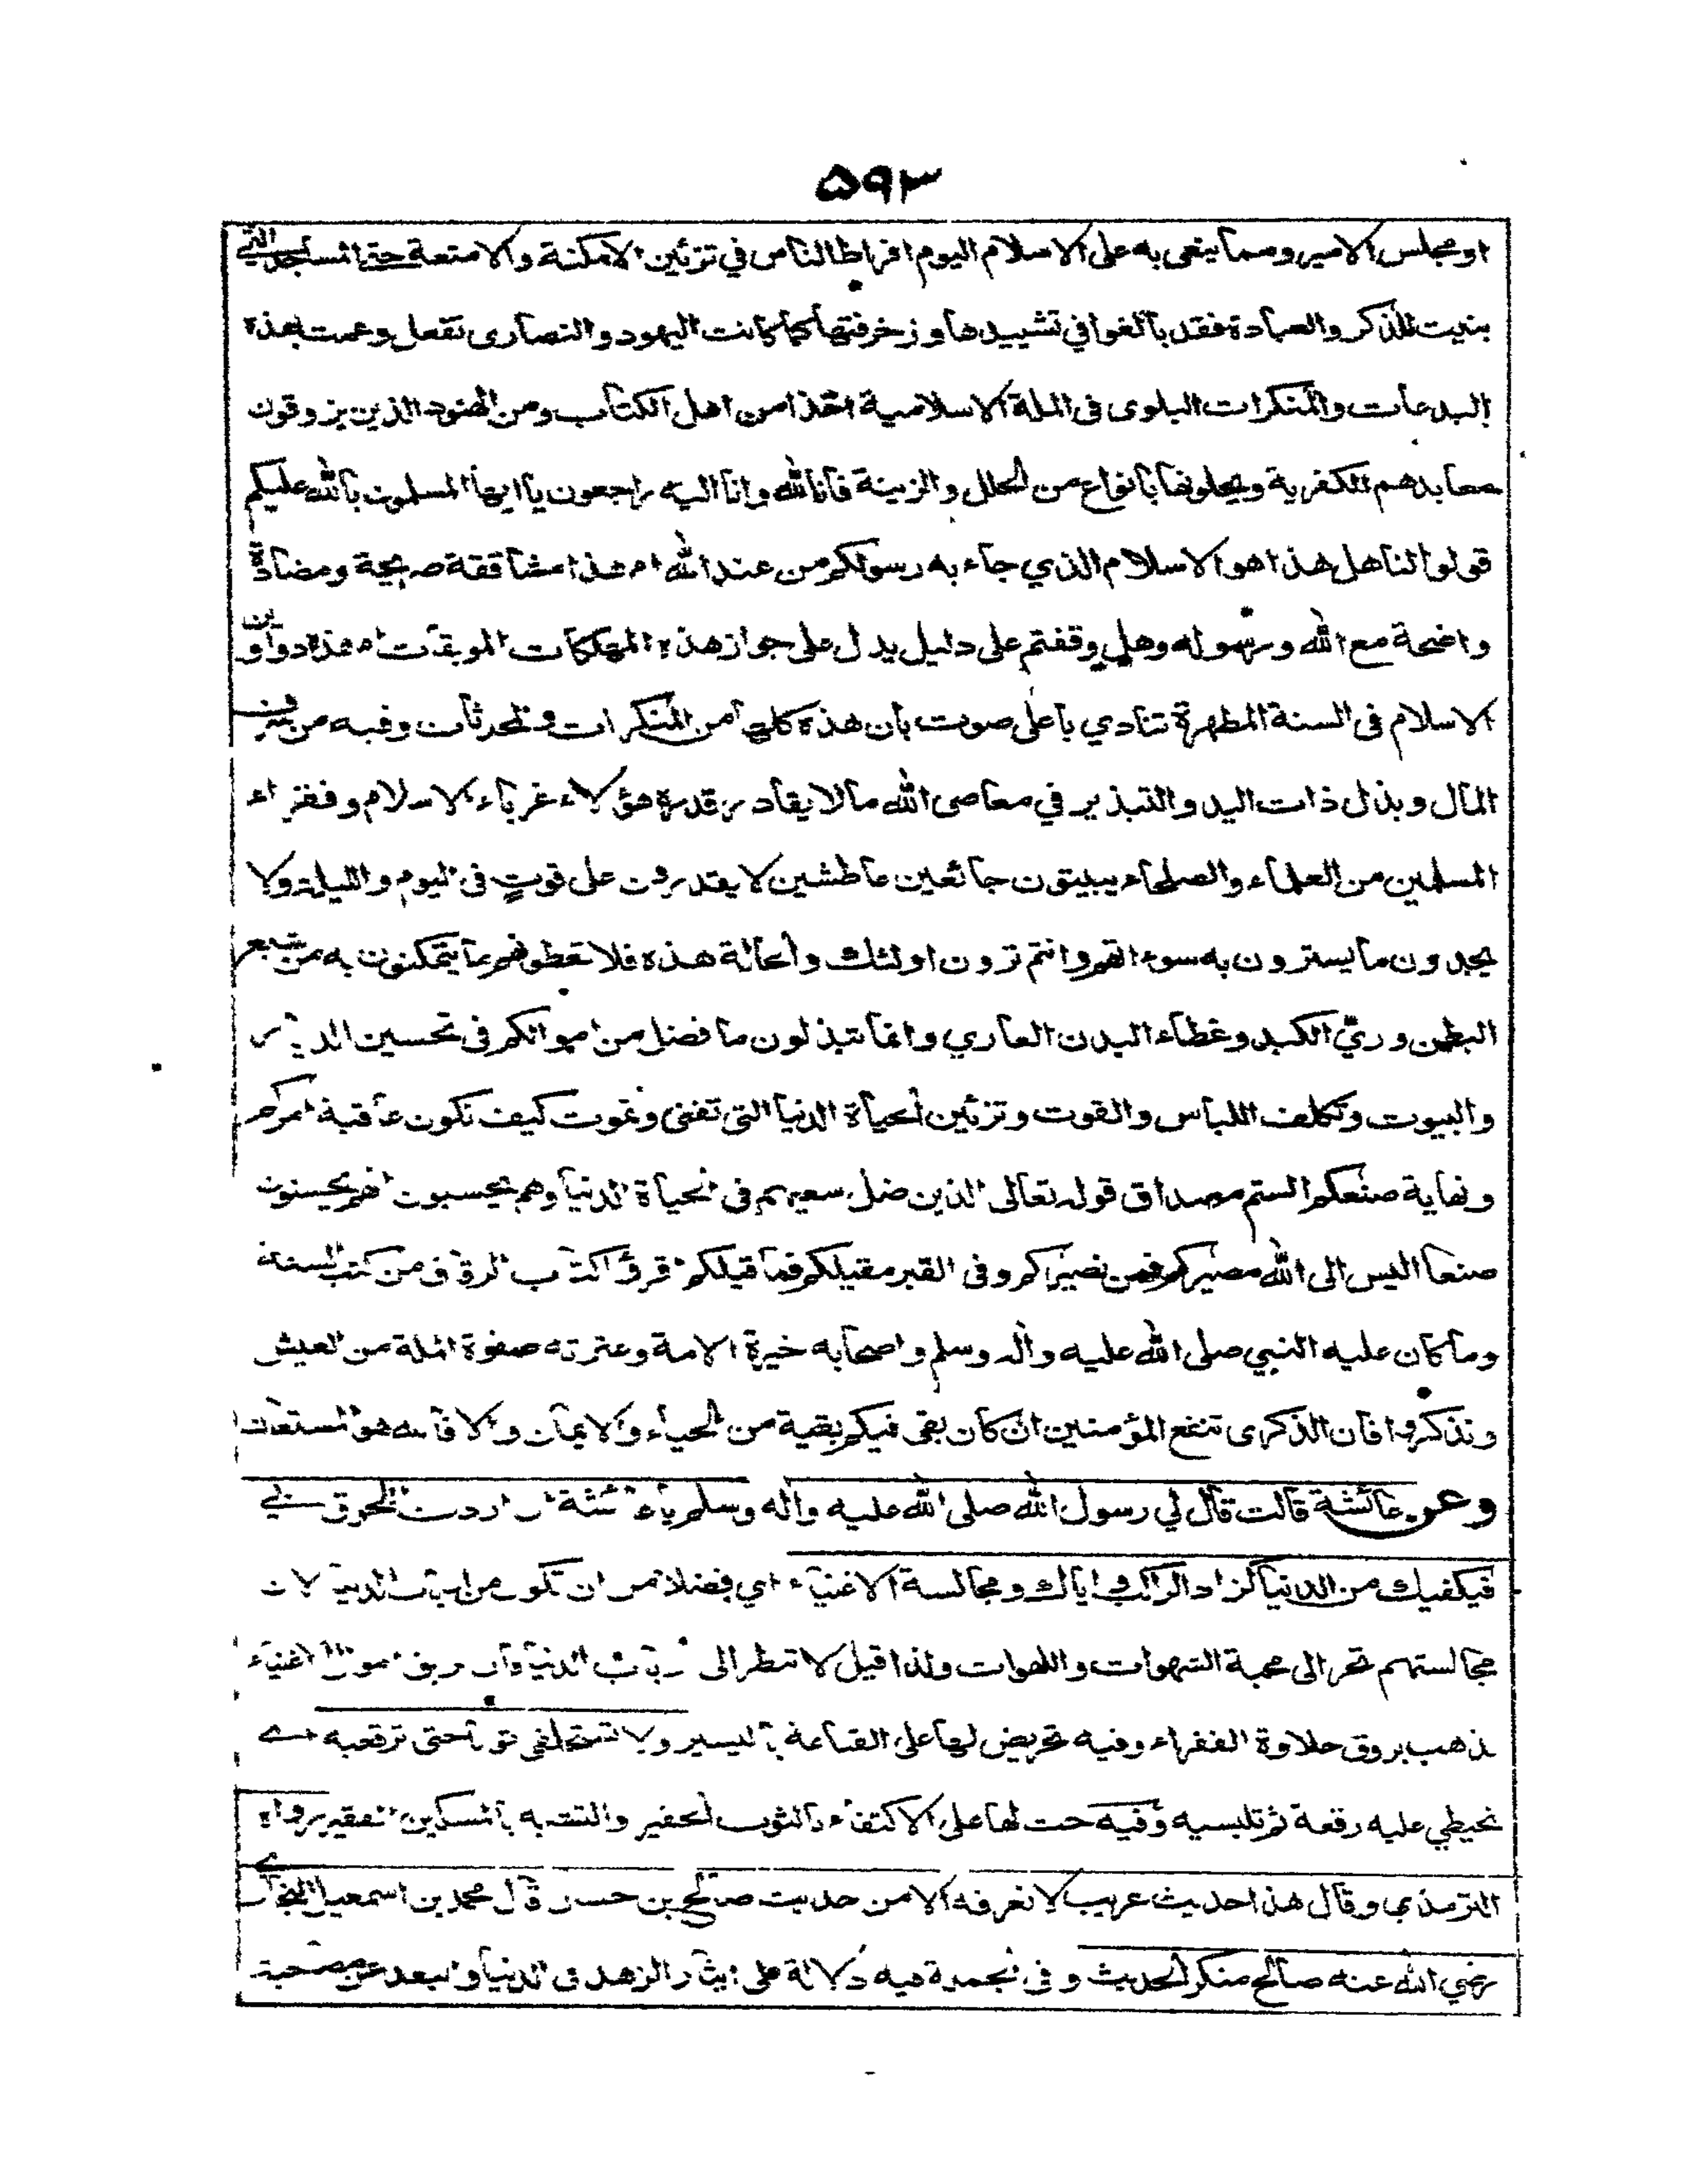 ٥٩٣
او مجلس الامير ومما ينعى به على الاسلام اليوم افراط الناس في تزئين الامكنة والامتعة حتى المساجد التي
بنيت للذكر والعبادة فقد بالغوا في تشييدها وزخرفتها كما كانت اليهود والنصارى تفعل وعمت بهذه
البدعات والمنكرات البلوى فى الملة الاسلامية اخذا من اهل الكتاب ومن الهنود الذين يزوقون
معابدهم الكفرية ويحلونها بانواع من الحلل والزينة فانا لله وانا اليه راجعون يا ايها المسلمون بالله عليكم
قولوا لنا هل هذا هو الاسلام الذي جاء به رسولكم من عند الله ام هذا مشاققة صريحة ومضادة
واضحة مع الله ورسوله وهل وقفتم على دليل يدل على جواز هذه المهلكات الموبقات هذه دواوين
الاسلام فى السنة المطهرة تنادي باعلى صوت بان هذه كلها من المنكرات والمحدثات وفيه من
المال وبذل ذات اليد والتبذير في معاصى الله ما لا يقادر قدره هؤلاء غرباء الاسلام وفقراء
المسلمين من العلماء والصلحاء يبيتون جائعين عاطشين لا يقدرون على قوت فى اليوم والليلة ولا
يجدون ما يسترون به سوءاتهم وانتم ترون اولئك والحالة هذه فلا تعطونهم ما يتمكنون به من شبع
البطن وري الكبد وغطاء البدن العاري وانما تبذلون ما فضل من اموالكم فى تحسين الديار
والبيوت وتكلف اللباس والقوت وتزئين الحياة الدنيا التى تفنى وتموت كيف تكون عاقبة امركم
ونهاية صنعكم الستم مصداق قوله تعالى الذين ضل سعيهم فى الحياة الدنيا وهم يحسبون انهم يحسنون
صنعا اليس الى الله مصيركم فمن نصيركم وفى القبر مقيلكم فما قيلكم اقرؤا كتاب الرقاق من كتب السنة
وما كان عليه النبي صلى الله عليه واله وسلم واصحابه خيرة الامة وعترته صفوة الملة من العيش
وتذكروا فان الذكرى تنفع المؤمنين ان كان بقى فيكم بقية من الحياء والايمان والا فالله هو المستعان
وعن عائشة قالت قال لي رسول الله صلى الله عليه واله وسلم يا عائشة ان اردت اللحوق بي
فيكفيك من الدنيا كزاد الراكب واياك ومجالسة الاغنياء اي فضلا من ان تكون من ارباب الدنيا لان
مجالستهم تجر الى محبة الشهوات واللهوات ولذا قيل لا تنظر الى ارباب الدنيا فان بريق اموال الاغنياء
يذهب برونق حلاوة الفقراء وفيه تحريض لها على القناعة باليسير ولا تستخلفى ثوبا حتى ترقعيه اے
تخيطي عليه رقعة ثم تلبسيه وفيه حث لها على الاكتفاء بالثوب الحقير والتشبه بالمسكين الفقير رواه
الترمذي وقال هذا حديث غريب لا نعرفه الا من حديث صالح بن حسان قال محمد بن اسمعيل البخاري
رضي الله عنه صالح منكر الحديث وفى الجملة فيه دلالة على ايثار الزهد فى الدنيا والبعد عن مصاحبة